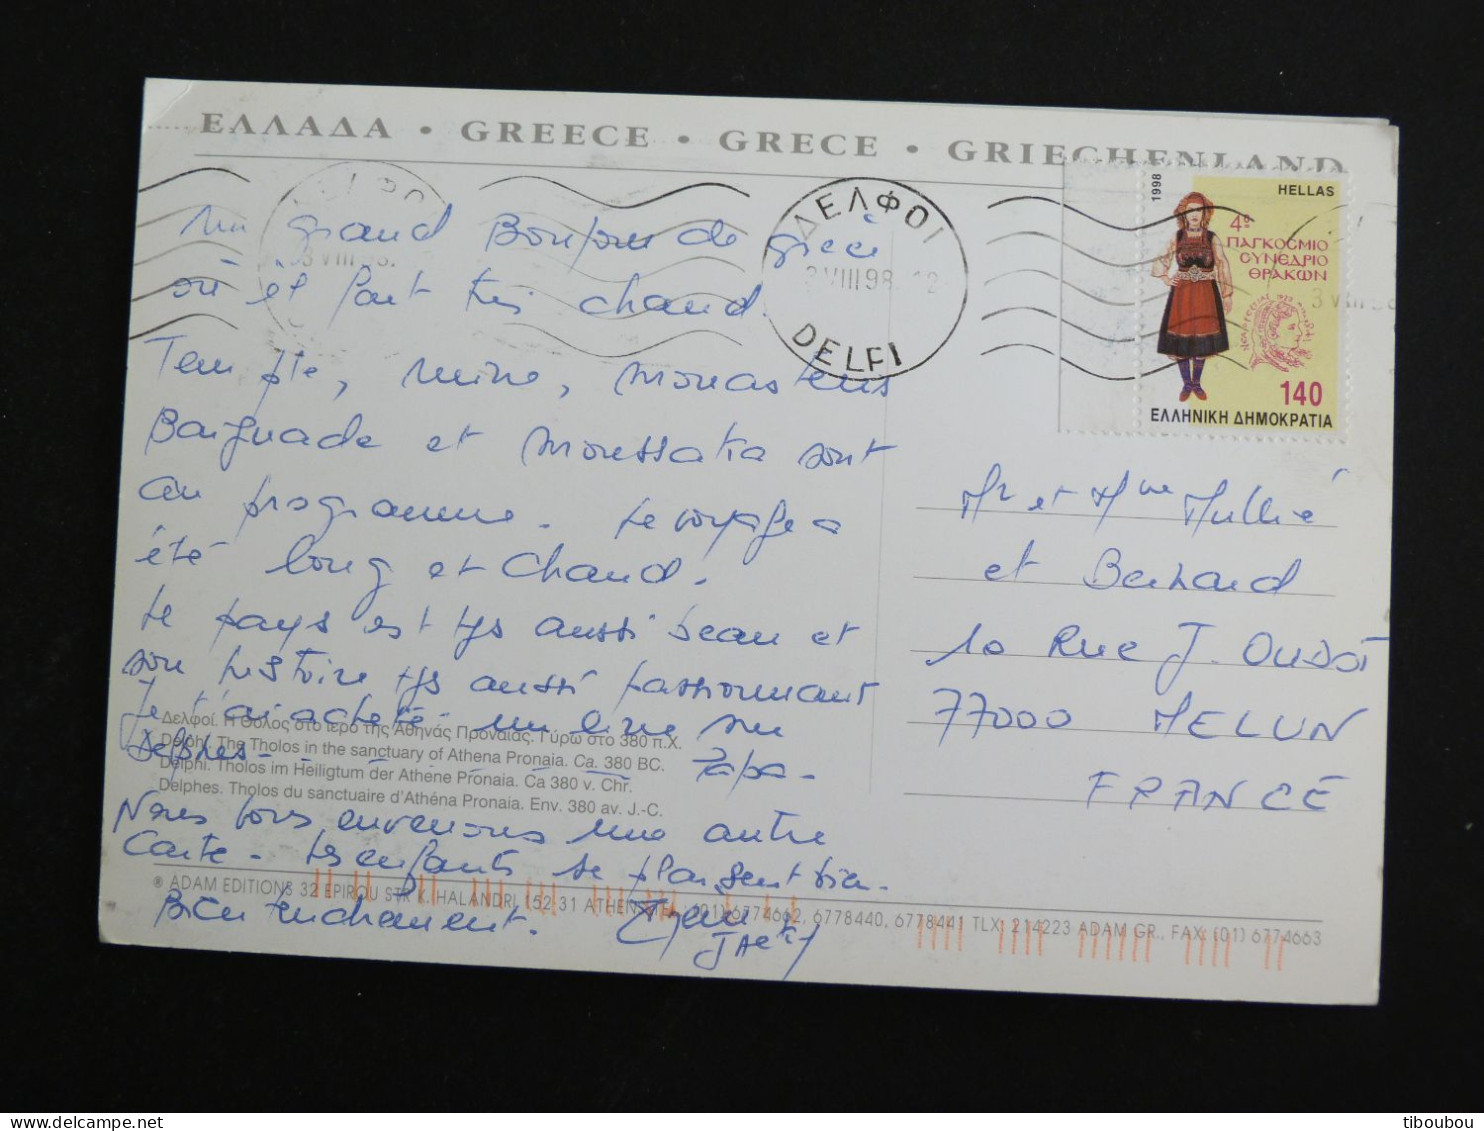 ΕΛΛΑΔΑ • GREECE • GRECE • GRIECHENLAND
ΔΕΛΦΟΙ
3 VIII 98. 12
DELFI
1998
HELLAS
4º
ΠΑΓΚΟΣΜΙΟ
ΣΥΝΕΔΡΙΟ
ΘΡΑΚΩΝ
140
ΕΛΛΗΝΙΚΗ ΔΗΜΟΚΡΑΤΙΑ
Un grand Bonjour de grèce
où il fait très chaud.
Temple, ruine, monastères
Baignade et moussaka sont
au programme. Le voyage a
été long et chaud.
Le pays est tjs aussi beau et
son histoire tjs aussi passionnant
Je t'ai acheté un livre sur
Delphes Papa.
Nous vous enverrons une autre
Carte. Les enfants se plaisent bien.
Bien tendrement.
Δελφοί. Η Θόλος στο ιερό της Αθηνάς Προναίας. Γύρω στο 380 π.Χ.
Delphi. The Tholos in the sanctuary of Athena Pronaia. Ca. 380 BC.
Delphi. Tholos im Heiligtum der Athene Pronaia. Ca 380 v. Chr.
Delphes. Tholos du sanctuaire d'Athéna Pronaia. Env. 380 av. J.-C.
® ADAM EDITIONS 32 EPIROU STR K. HALANDRI, 152 31 ATHENS (01) 6774662, 6778440, 6778441 TLX: 214223 ADAM GR., FAX: (01) 6774663
Mr et Mme Mullié
et Bernard
10 Rue J. OUDOT
77000 MELUN
FRANCE
tiboubou / delcampe.net